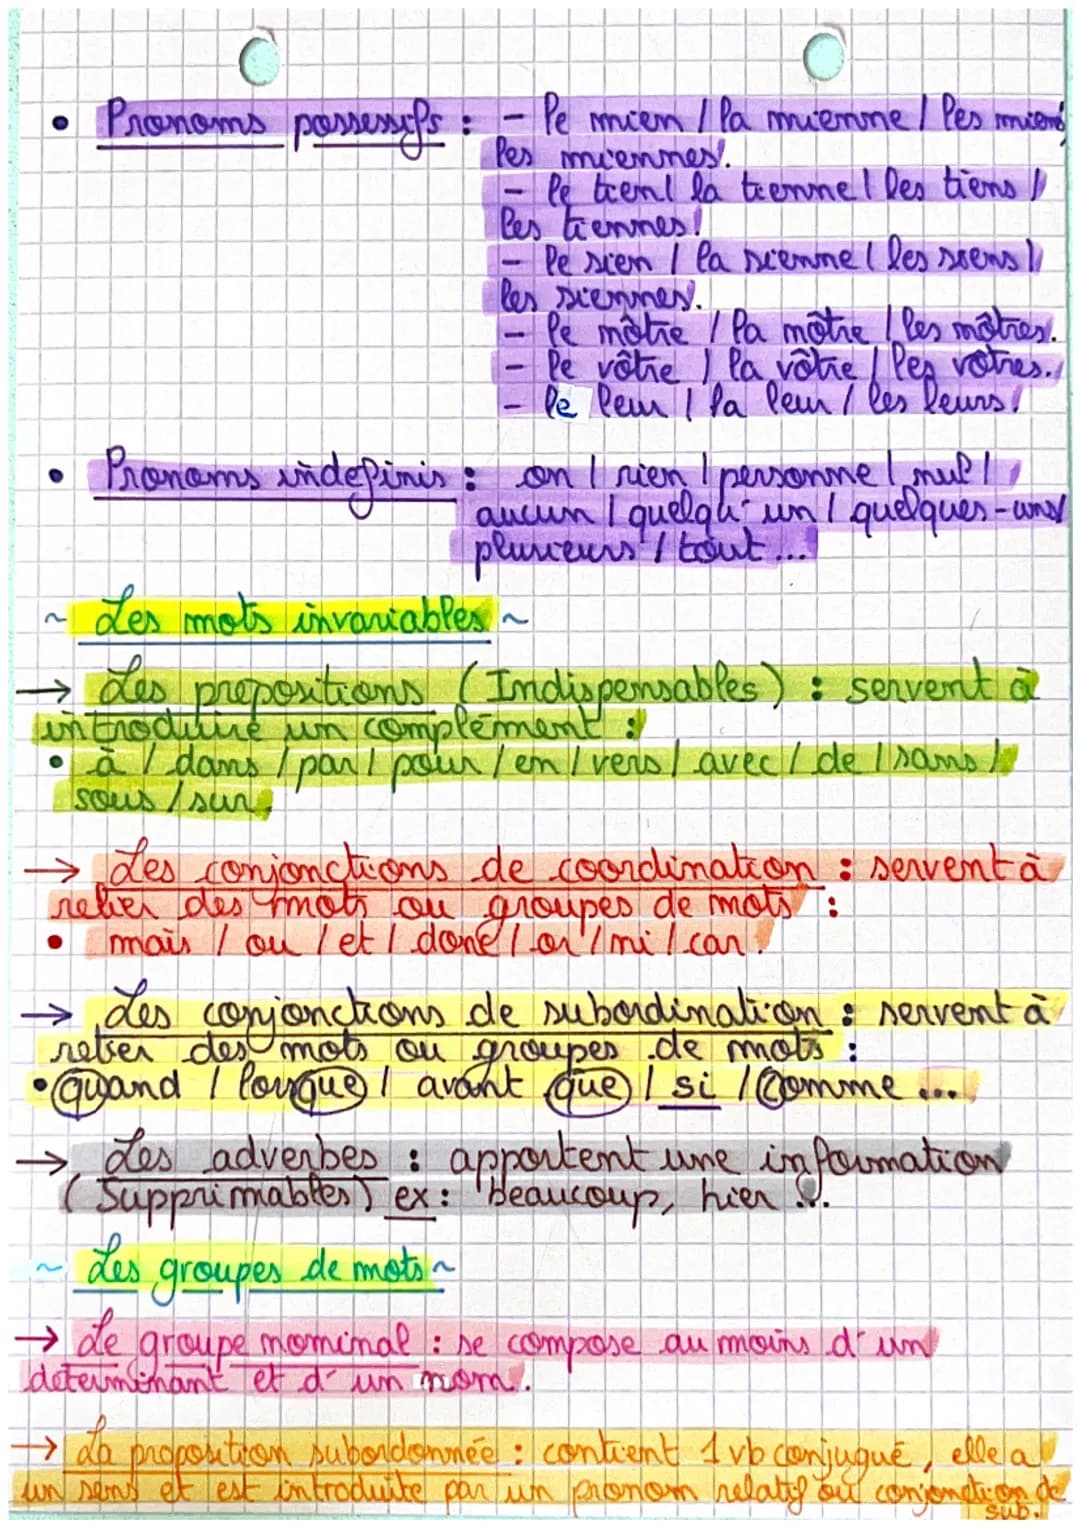 • Pronoms possessifs : - le mien / la mienne / les miens /
les miennes.
- le tien / la tienne / les tiens /
les tiennes.
- le sien / la sienne / les siens /
les siennes.
- le nôtre / la nôtre / les nôtres.
- le vôtre / la vôtre / les vôtres.
- le leur / la leur / les leurs.
• Pronoms indéfinis : on / rien / personne / nul /
aucun / quelqu'un / quelques-uns /
plusieurs / tout ...
~ Les mots invariables ~
→ Les prepositions (Indispensables) : servent à
introduire un complément :
• à / dans / par / pour / en / vers / avec / de / sans /
sous / sur.
→ Les conjonctions de coordination : servent à
relier des mots ou groupes de mots :
• mais / ou / et / donc / or / ni / car.
→ Les conjonctions de subordination : servent à
relier des mots ou groupes de mots :
• quand / lorsque / avant que / si / comme ...
→ Les adverbes : apportent une information
(Supprimables) ex : beaucoup, hier ...
~ Les groupes de mots ~
→ Le groupe nominal : se compose au moins d'un
déterminant et d'un nom.
→ La proposition subordonnée : contient 1 vb conjugué, elle a
un sens et est introduite par un pronom relatif ou conjonction de
sub.